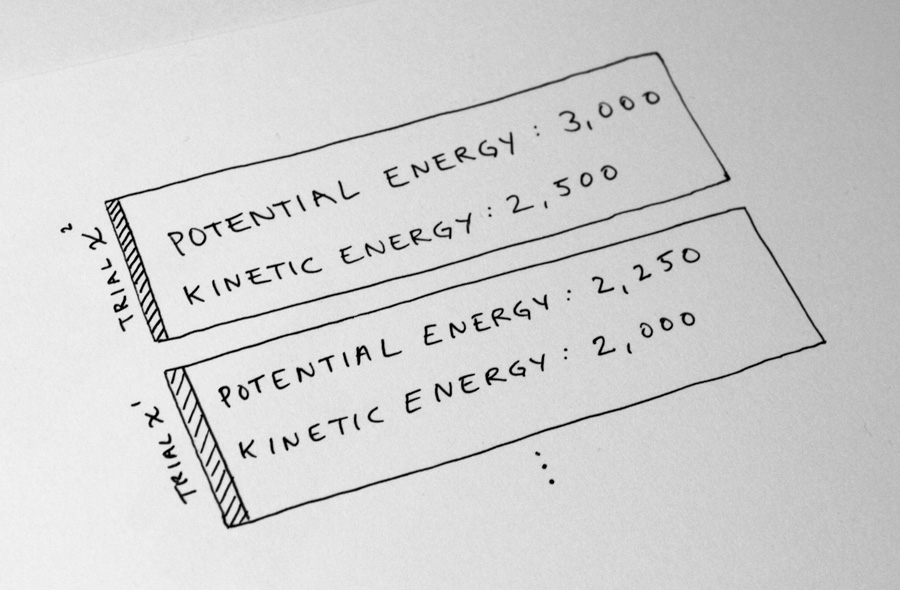 TRIAL x²
POTENTIAL ENERGY: 3,000
KINETIC ENERGY: 2,500
TRIAL x¹
POTENTIAL ENERGY: 2,250
KINETIC ENERGY: 2,000
⋮